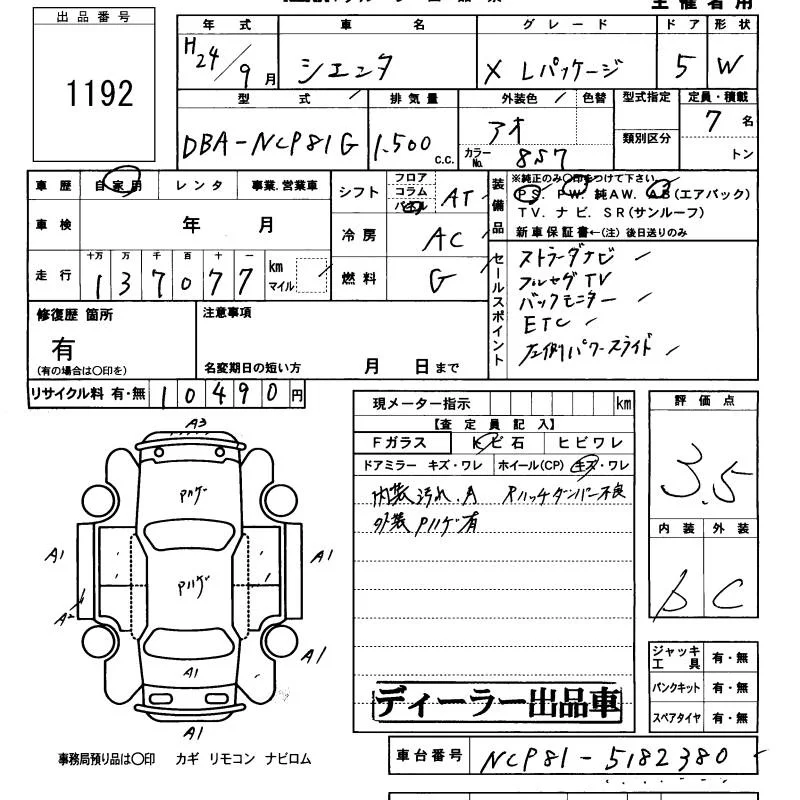 出品番号
1192
年式 車名 グレード ドア 形状
H24/9月 シエンタ X Lパッケージ 5 W
型式 排気量 外装色 色替 型式指定 定員・積載
DBA-NCP81G 1.500 c.c. アオ 7名
カラーNo. 8S7 類別区分 トン
車歴 自家用 レンタ 事業.営業車
車検 年 月
走行 十万 万 千 百 十 一
137077 km マイル
シフト フロア コラム パネル AT
冷房 AC
燃料 G
装備品 ※純正のみ〇印をつけて下さい
PS. PW. 純AW. AB(エアバック)
TV. ナビ. SR(サンルーフ)
新車保証書←(注) 後日送りのみ
セールスポイント
ストラーダナビ
フルセグTV
バックモニター
ETC
左側パワースライド
修復歴 箇所
有
(有の場合は〇印を)
注意事項
名変期日の短い方 月 日まで
リサイクル料 有・無 10490円
現メーター指示 km
【査定員記入】
Fガラス トビ石 ヒビワレ
ドアミラー キズ・ワレ ホイール(CP) キズ・ワレ
内装 汚れ.A Rハッチダンパー不良
外装 Pハゲ有
ディーラー出品車
評価点
3.5
内装 外装
b C
ジャッキ工具 有・無
パンクキット 有・無
スペアタイヤ 有・無
A3
Pハゲ
A1
A1
A2
Pハゲ
A1
A1
A1
事務局預り品は〇印 カギ リモコン ナビロム
車台番号 NCP81-5182380